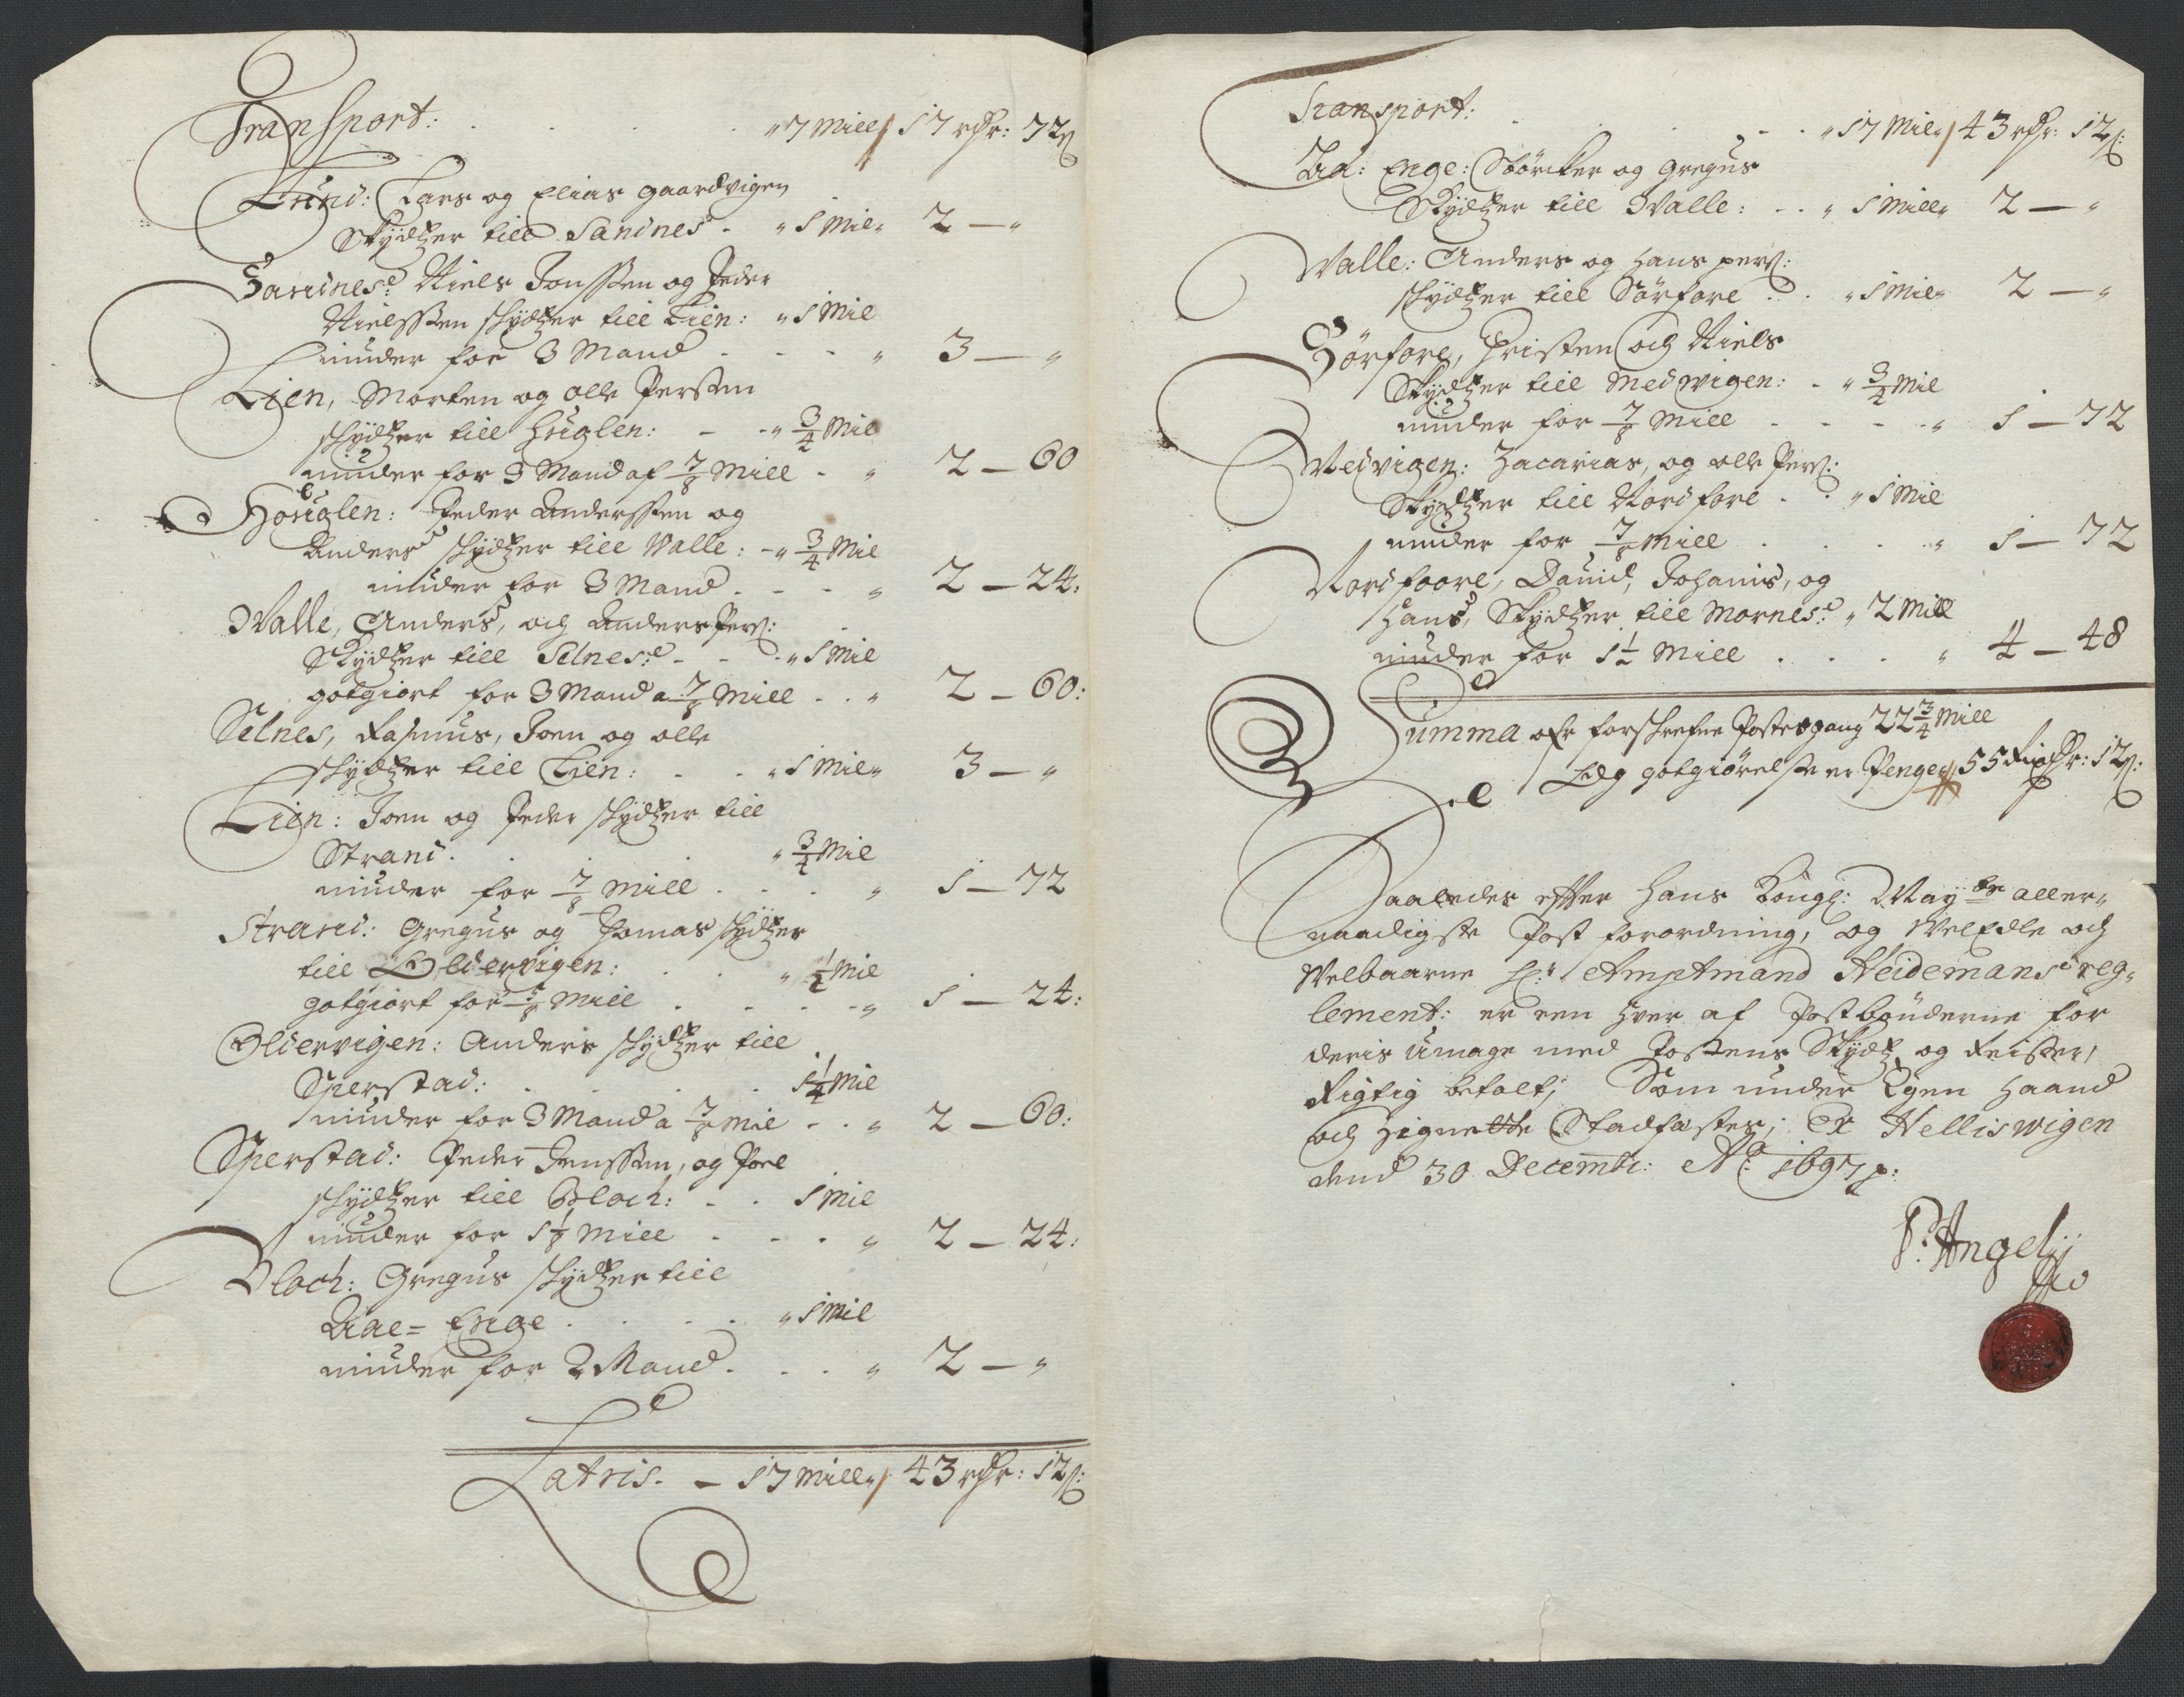 Transport: . . . . . „ 7 Mill„ 17 rdr: 72 s
Lund: Lars og Elias gaardvigen
Skydtzer till Sandnes . „ 1 Mil„ 2 — „
Sandnes: Niels Jonssen og Peder
Nielssen skydtzer till Lien: „ 1 Mil
niuder for 3 Mand . . . „ 3 — „
Lien, Morten og olle Perssen
skydtzer till Huglen: - - „ 3/4 Mil
niuder for 3 Mand af 7/8 Mill - „ 2 — 60
Höuglen: Peder Anderssen og
Anders skydtzer till Valle: - „ 3/4 Mil
niuder for 3 Mand . . . „ 2 — 24:
Walle, Anders, och Anders Pers:
Skydtzer till Selnes: - - „ 1 Mil
gotgiort for 3 Mand a 7/8 Mill . . „ 2 — 60:
Selnes, Rasmus, Joen og olle
skydtzer till Lien: . . „ 1 Mil„ 3 — „
Lien: Joen og Peder skydtzer till
Strand. . . . „ 3/4 Mil
niuder for 7/8 Mill . . . „ 1 — 72
Strand: Gregus og Thomas skydtzer
till Oldervigen: . . „ 1/2 Mil
gotgiort for 5/8 Mill . . . „ 1 — 24:
Oldervigen: Anders skydtzer till
Sperstad: . . . . 1 1/4 Mil
niuder for 3 Mand a 7/8 Mil . . „ 2 — 60:
Sperstad: Peder Jenssen, og Poel
skydtzer till Bloch: . . 1 Mil
niuder for 1 1/8 Mill . . . „ 2 — 24:
Bloch: Gregus skydtzer till
Aae= Enge . . . . „ 1 Mil
niuder for 2 Mand . . . „ 2 — „
Latris. — 17 Mill„ 43 rdr: 12 s:
Transport: . . . . „ 17 Mil„ 43 rdr: 12 s:
Aa: Enge: Störcker og Gregus
Skydtzer till Walle: . . „ 1 Mill„ 2 — „
Walle: Anders og Hans pers:
skydtzer till Sörfore . . „ 1 Mil„ 2 — „
Sörfore, Christen och Niels
Skydtzer till Medwigen: - „ 3/4 Mil
niuder for 7/8 Mill . . . . „ 1 — 72
Medvigen: Zacarias, og olle Pers:
Skydtzer till Nordfore . . „ 1 Mil
niuder for 7/8 Mill . . . „ 1 — 72
Nordfoore, Dauid, Johanis, og
Hans, Skydtzer till Mornes: „ 2 Mill
niuder for 1 1/2 Mill . . . „ 4 — 48
Summa ofr forschrefne Postesgang 22 3/4 Mill
Och gotgiörelse er Penge„ 55 Rixdr: 12 s:
Saaledes effter Hans Kongl: May:tz aller„
naadigste Post forordning, og Welædle och
Welbaarne Hr: Amptmand Heidemans reg„
lement: er een hver af Postbönderne for
deris Umage med Postens Skydtz og Reiser,
Rigtig betalt; Som under Egen Haand
och Signette Stadfæster; Ex Helliswigen
dend 30 Decembr: Ao: 1697 p:
P: Angelij